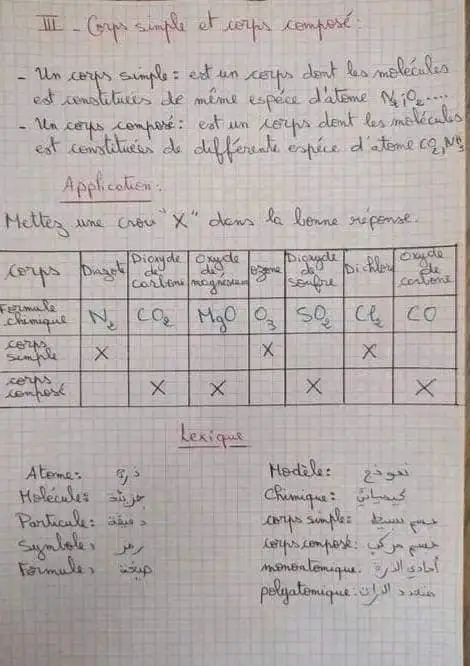 III - Corps simple et corps composé:
- Un corps simple: est un corps dont les molécules
est constituées de même espèce d'atome N₂; O₂....
- Un corps composé: est un corps dont les molécules
est constituées de différente espèce d'atome CO₂, NH₃
Application:
Mettez une croix "X" dans la bonne réponse.
corps | Diazote | Dioxyde de carbone | Oxyde de magnésium | ozone | Dioxyde de soufre | Dichlore | Oxyde de carbone
Formule chimique | N₂ | CO₂ | MgO | O₃ | SO₂ | Cl₂ | CO
corps simple | X | | | X | | X |
corps composé | | X | X | | X | | X
Lexique
Atome: ذرة
Molécule: جزيئة
Particule: دقيقة
Symbole: رمز
Formule: صيغة
Modèle: نموذج
Chimique: كيميائي
corps simple: جسم بسيط
corps composé: جسم مركب
monoatomique: أحادي الذرة
polyatomique: متعدد الذرات